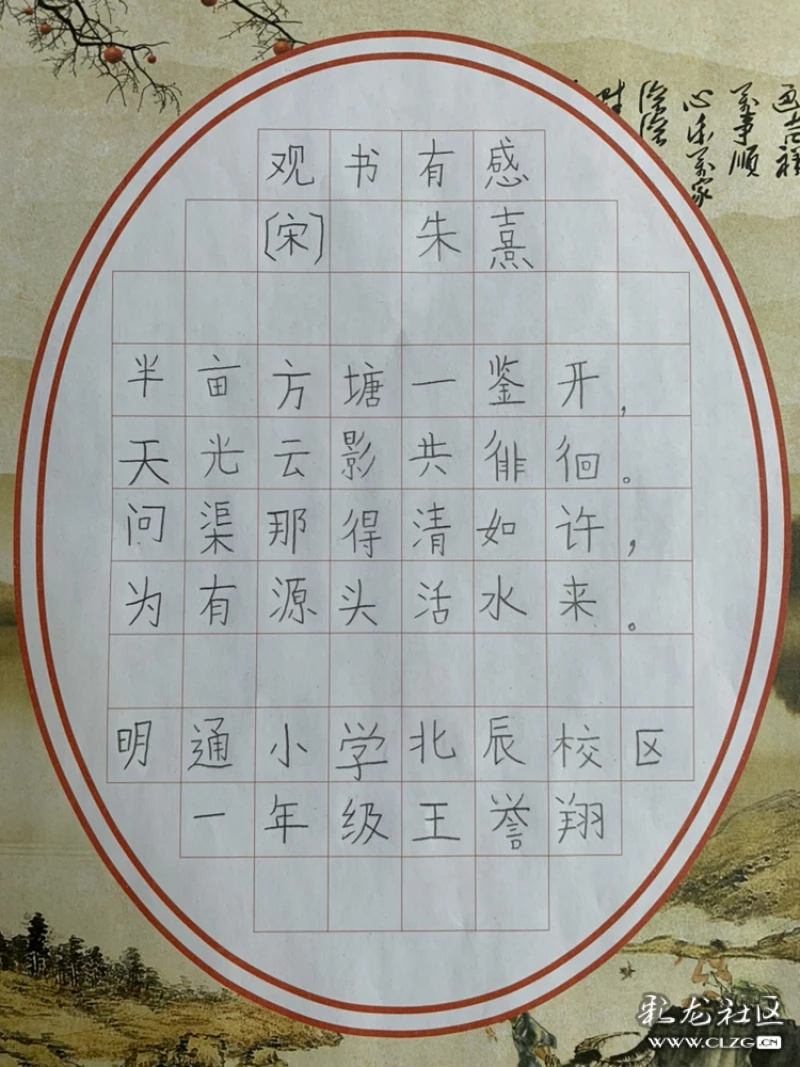 观书有感
〔宋〕 朱熹
半亩方塘一鉴开，
天光云影共徘徊。
问渠那得清如许，
为有源头活水来。
明通小学北辰校区
一年级王誉翔
万事顺
彩龙社区
WWW.CLZG.CN